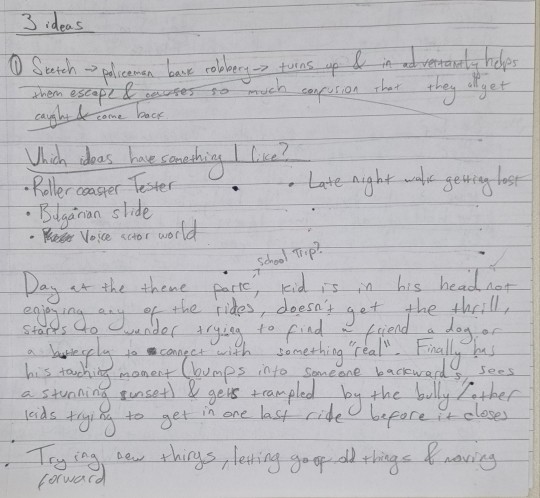 3 ideas
① Sketch → policeman bank robbery → turns up & inadvertantly helps
them escape & causes so much confusion that they all get
caught & come back
Which ideas have something I like?
• Roller coaster Tester
• Late night walk getting lost
• Bulgarian slide
• Voice actor world
School Trip?
Day at the theme park, kid is in his head not
enjoying any of the rides, doesn't get the thrill,
starts to wander trying to find a friend a dog or
a butterfly to connect with something "real". Finally has
his touching moment (bumps into someone backwards, sees
a stunning sunset) & gets trampled by the bully/other
kids trying to get in one last ride before it closes
• Trying new things, letting go of old things & moving
forward